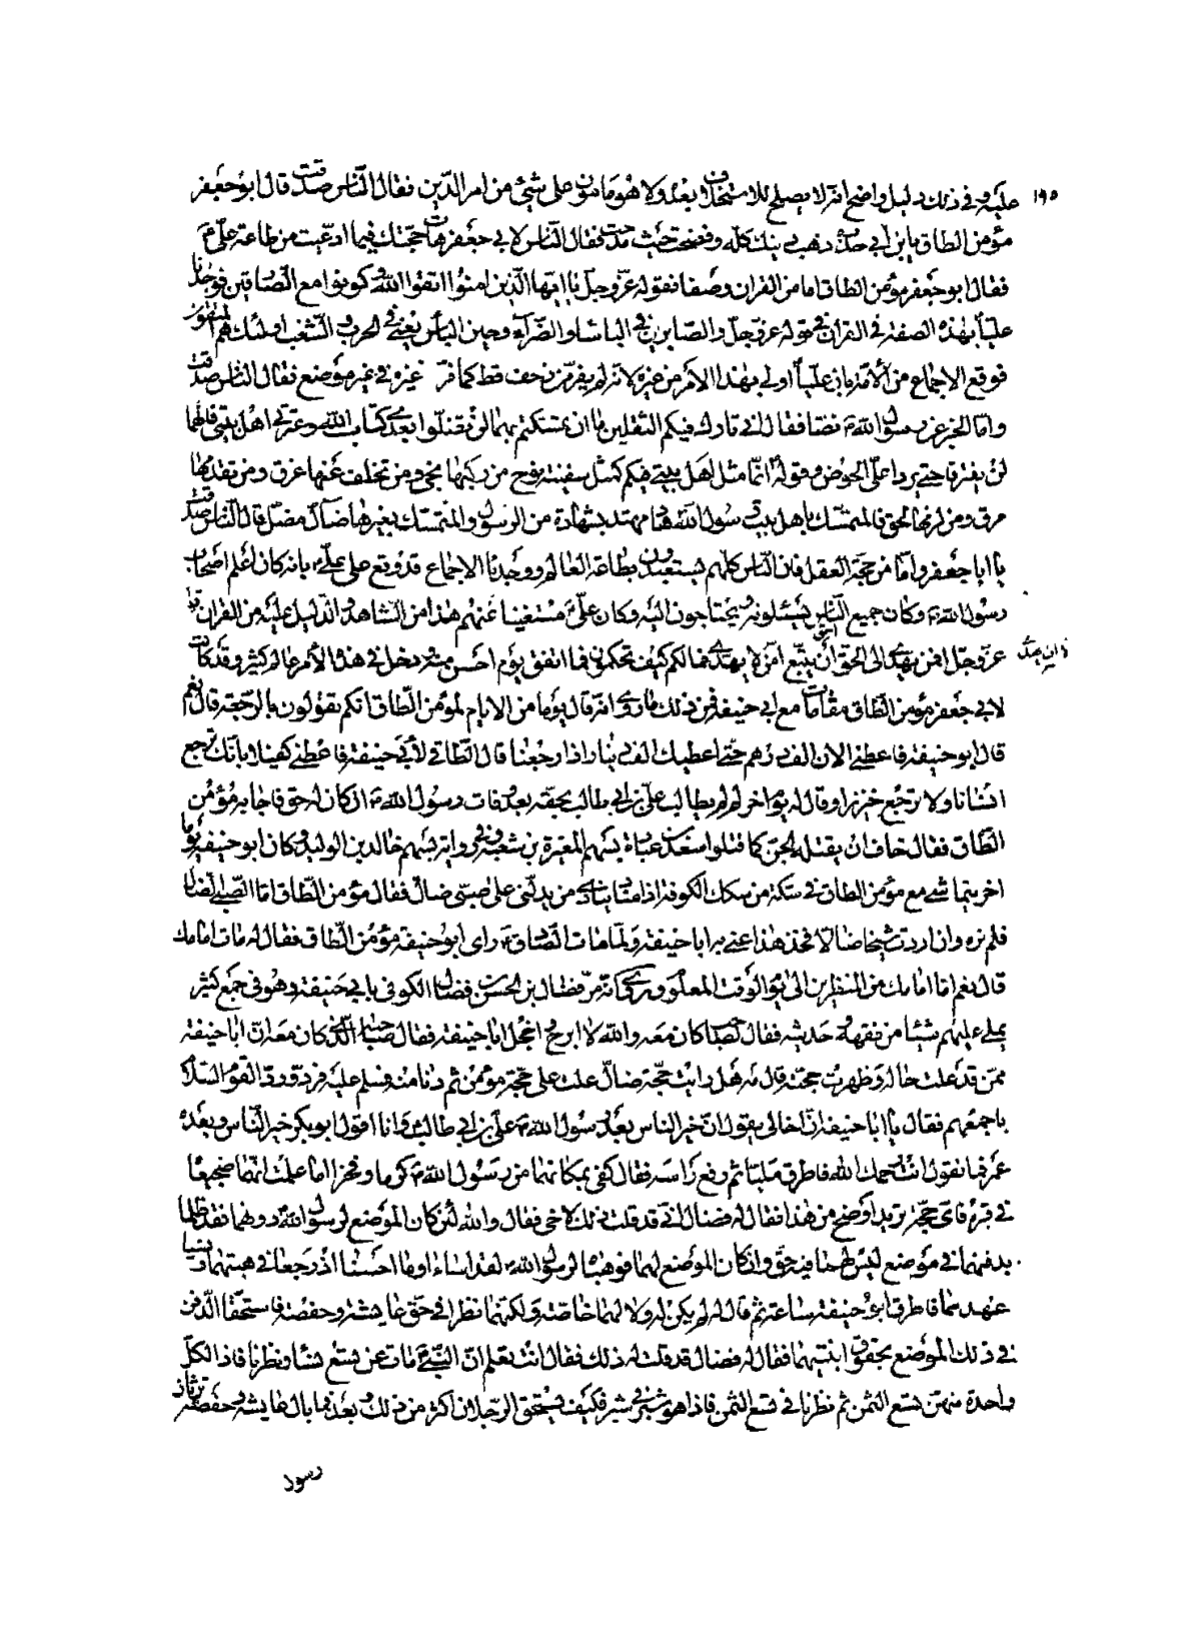 ١٩٥
عليه وفي ذلك دليل واضح انه لا يصلح للاستخلاف بعده ولا هو مامون على شيئ من امر الدّين فقال النّاس صدقت قال ابو جعفر
مؤمن الطاق يابن ابي حذرة ذهب دينك كلّه وفضحت حيث مدحت فقال النّاس لابي جعفر هات حجّتك فيما ادّعيت من طاعة عليّ ع
فقال ابو جعفر مؤمن الطاق اما من القران وصفا فقوله عزّ وجلّ يا ايّها الّذين امنوا اتقوا الله وكونوا مع الصّادقين فوجدنا
عليّاً بهذه الصفة في القران في قوله عزّ وجلّ والصابرين في الباساء والضّرآء وحين البأس يعني في الحرب والشّغب اولئك هم المتقون
فوقع الاجماع من الأمّة بان عليّاً اولى بهذا الامر من غيره لانّه لم يفرّ من زحف قط كما فرّ غيره في غير موضع فقال النّاس صدقت
وامّا الخبر عن رسول الله ص نصّا فقال انّي تارك فيكم الثقلين ما ان تمسّكتم بهما لن تضلّوا بعدي كتاب الله وعترتي اهل بيتي فانّهما
لن يفترقا حتّى يردا عليّ الحوض وقوله انّما مثل اهل بيتي فيكم كمثل سفينة نوح من ركبها نجى ومن تخلّف عنها غرق ومن تقدمها
مرق ومن لزمها لحق فالمتمسّك باهل بيت رسول الله هاد مهتد بشهادة من الرسول والمتمسّك بغيرها ضالّ مضلّ قال النّاس صدقت
يا ابا جعفر وامّا من حجّة العقل فان النّاس كلّهم يستعبدون بطاعة العالم ووجدنا الاجماع قد وقع على عليّ ع بانّه كان اعلم اصحاب
رسول الله ص وكان جميع النّاس يسئلونه ويحتاجون اليه وكان عليّ ع مستغنيا عنهم هذا من الشّاهد والدّليل عليه من القران قوله
عزّ وجلّ افمن يهدي الى الحق احق ان يتّبع امّن لا يهدّي فما لكم كيف تحكمون فما اتفق يوم احسن منه ودخل في هذا الأمر عالم كثير وقد كانت
لابي جعفر مؤمن الطّاق مقامات مع ابي حنيفة فمن ذلك ما روي انّه قال يوما من الايام لمؤمن الطّاق انكم تقولون بالرّجعة قال نعم
قال ابو حنيفة فاعطني الان الف درهم حتّى اعطيك الف دينار اذا رجعنا قال الطّاقي لأبي حنيفة فاعطني كفيلا بانّك ترجع
انسانا ولا ترجع خنزيرا وقال له يوما اخر لم لم يطالب عليّ بن ابي طالب بحقّه بعد وفات رسول الله ص ان كان له حق فاجابه مؤمن
الطّاق فقال خاف ان يقتله الجنّ كما قتلوا سعد بن عبادة بسهم المغيرة بن شعبة وفي رواية بسهم خالد بن الوليد وكان ابو حنيفة يوما
اخر يتماشى مع مؤمن الطاق في سكّة من سكك الكوفة اذا مناد ينادي من يدلّني على صبيّ ضالّ فقال مؤمن الطّاق امّا الصّبي الضال
فلم نره وان اردت شيخا ضالا فخذ هذا عنى به ابا حنيفة ولمّا مات الصّادق ع راى ابو حنيفة مؤمن الطّاق فقال له مات امامك
قال نعم امّا امامك من المنظرين الى يوم الوقت المعلوم وروي انّه مرّ فضّال بن الحسن بن فضّال الكوفي بابي حنيفة وهو في جمع كثير
يملي عليهم شيئا من فقهه وحديثه فقال لصاحب كان معه والله لا ابرح او اخجل ابا حنيفة فقال صاحبه الّذي كان معه انّ ابا حنيفة
ممّن قد علت حاله وظهرت حجّته قال مه هل رايت حجّة ضالّ علت على حجّة مؤمن ثم دنا منه فسلم عليه فردّ وردّ القوم السّلام
باجمعهم فقال يا ابا حنيفة انّ اخا لي يقول انّ خير النّاس بعد رسول الله ص عليّ بن ابي طالب وانا اقول ابو بكر خير النّاس وبعده
عمر فما تقول انت رحمك الله فاطرق مليّا ثم رفع راسه فقال كفى بمكانهما من رسول الله ص كرما وفخرا اما علمت انّهما ضجيعاه
في قبره فاي حجّة تريد اوضح من هذا فقال له فضال انّي قد قلت ذلك لاخي فقال والله لئن كان الموضع لرسول الله دونهما فقد ظلما
بدفنهما في موضع ليس لهما فيه حقّ وان كان الموضع لهما فوهباه لرسول الله ص لقد اساءا وما احسنا اذ رجعا في هبتهما ونسيا
عهدهما فاطرق ابو حنيفة ساعة ثم قال له لم يكن له ولا لهما خاصّة ولكنّهما نظرا في حقّ عايشة وحفصة فاستحقّا الدّفن
في ذلك الموضع بحقوق ابنتيهما فقال له فضال قد قلت له ذلك فقال انت تعلم انّ النّبي ص مات عن تسع نساء ونظرنا فاذا لكلّ
واحدة منهنّ تسع الثمن ثم نظرنا في تسع الثمن فاذا هو شبر في شبر فكيف يستحق الرّجلان اكثر من ذلك وبعد فما بال عايشة وحفصة ترثان
رسول